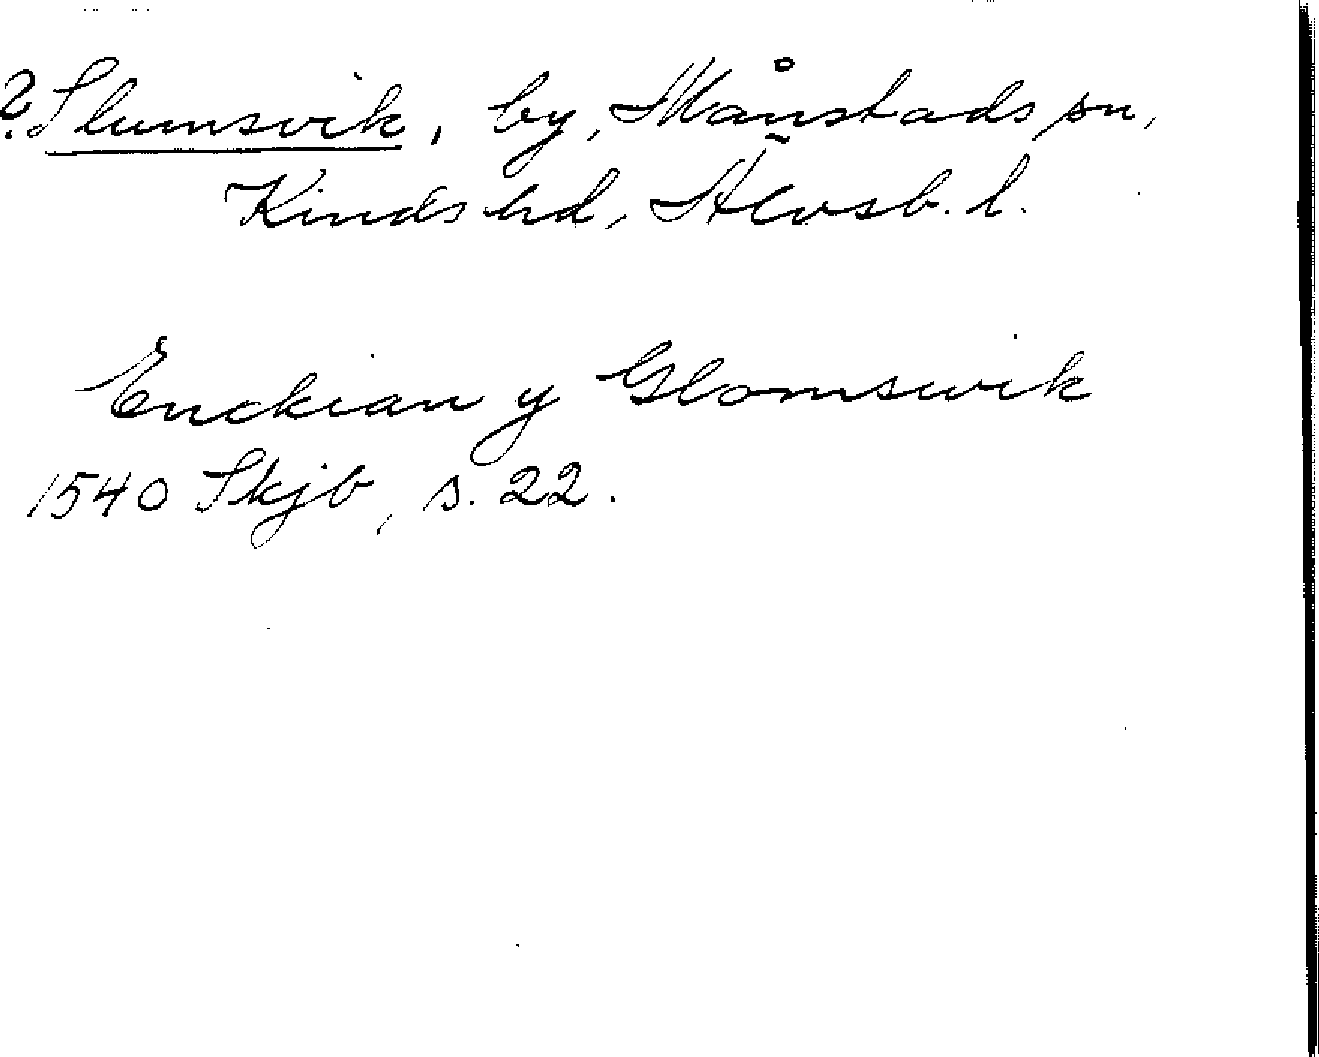 ? Slumsvik, by, Månstads sn,
Kinds hd, Älvsb. l.
Enckian y Glomswik
1540 Skjb, s. 22.